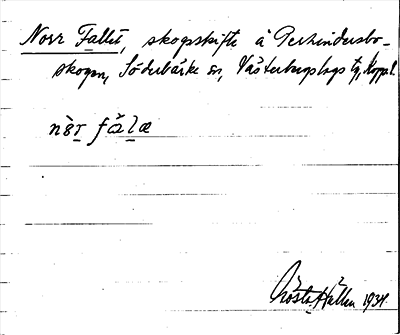 Norr Fallet, skogsskifte å Perhindersbo-
skogen, Söderbärke sn, Västerbergslags tg, Kopp. l.
nò̀r fǎlæ
Gösta Hallén 1934.